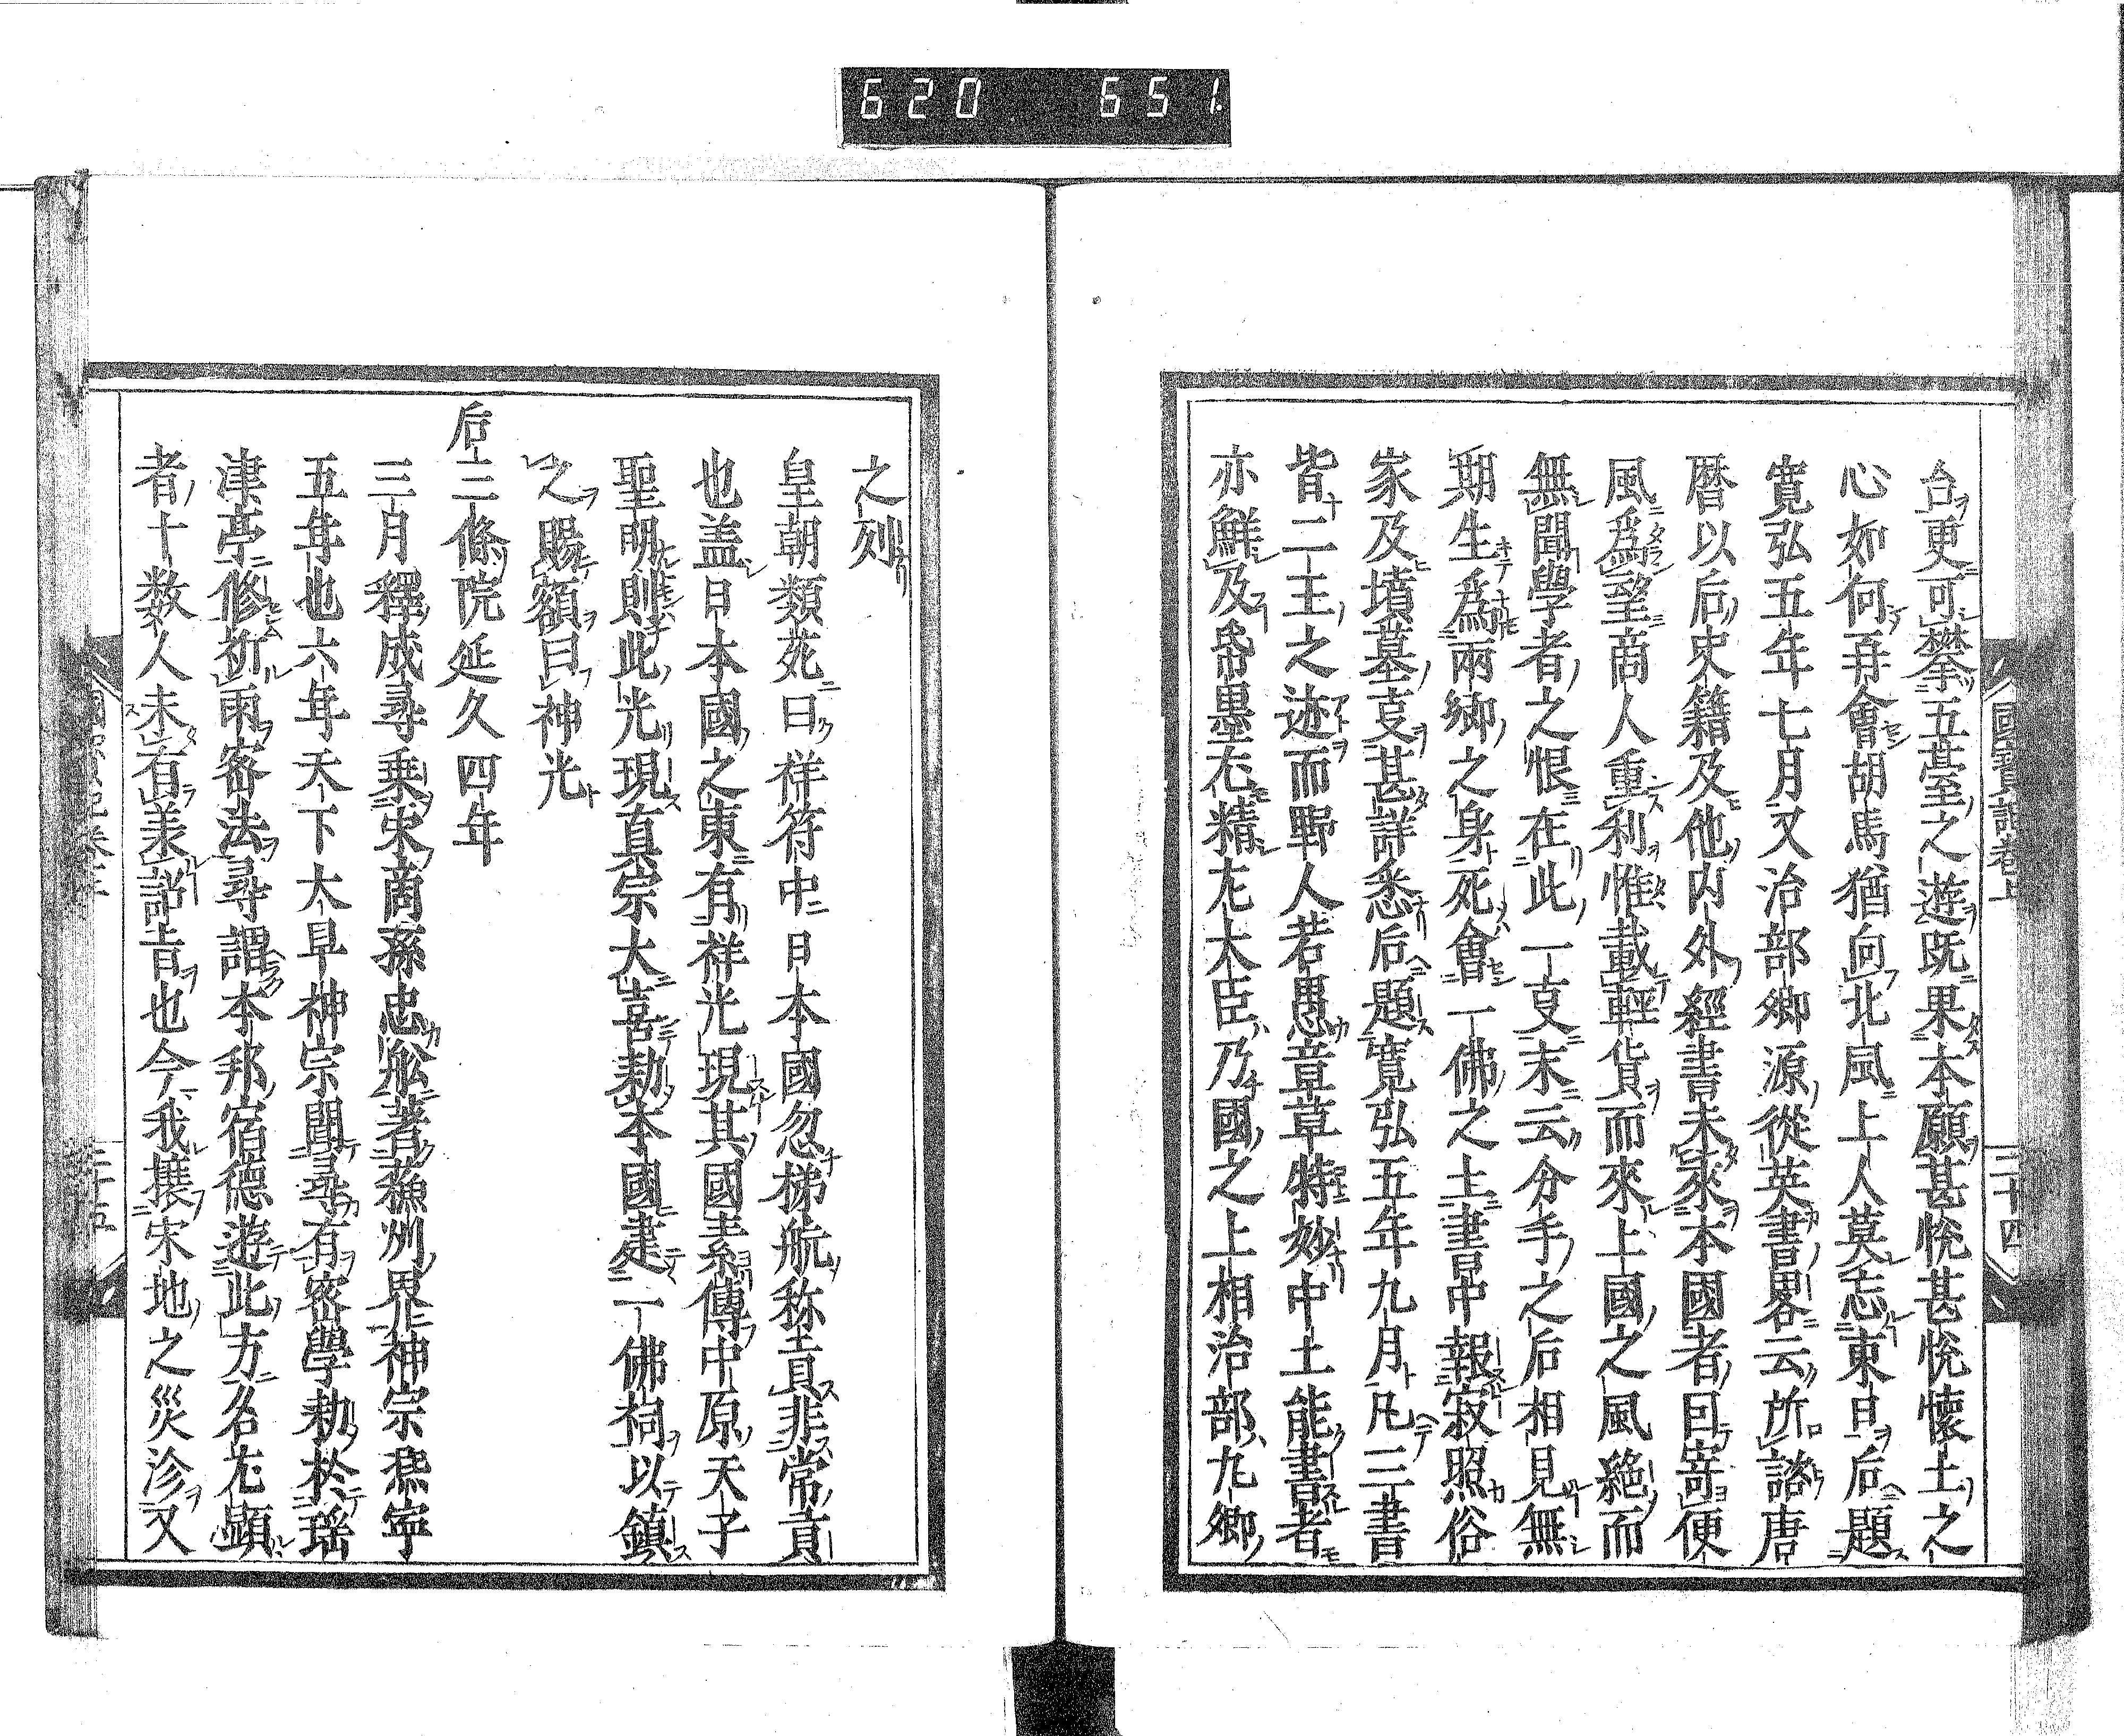 620 651
台更可攀五臺之遊既果本願甚悅甚悅懷土之
心如何再會胡馬猶向北風上人莫忘東日后題
寬弘五年七月又治部卿源從英書畧云所諮唐
曆以后史籍及他内外經書未來本國者因寄便
風爲望商人重利惟載輕貨而來上國之風絕而
無聞學者之恨在此一支末云分手之后相見無
期生爲兩鄉之身死會一佛之土書中報寂照俗
家及墳墓支甚詳悉后題寬弘五年九月凡三書
皆二王之迹而野人若愚章草特妙中土能書者
亦鮮及帋墨尤精左大臣乃國之上相治部九卿
國寶記卷上
二十四
之列
皇朝類苑曰祥符中日本國忽梯航称貢非常貢
也盖日本國之東有祥光現其國素傳中原天子
聖明則此光現真宗大喜勅本國建一佛祠以鎮
之賜額曰神光
后三條院延久四年
三月釋成尋乗宋商孫忠舩著蘓州界神宗凞寧
五年也六年天下大旱神宗聞尋有密學勅於瑶
津亭修祈雨密法尋謂本邦宿德遊此方名尤顯
者十数人未有美詔旨也今我攘宋地之災沴又
二十五